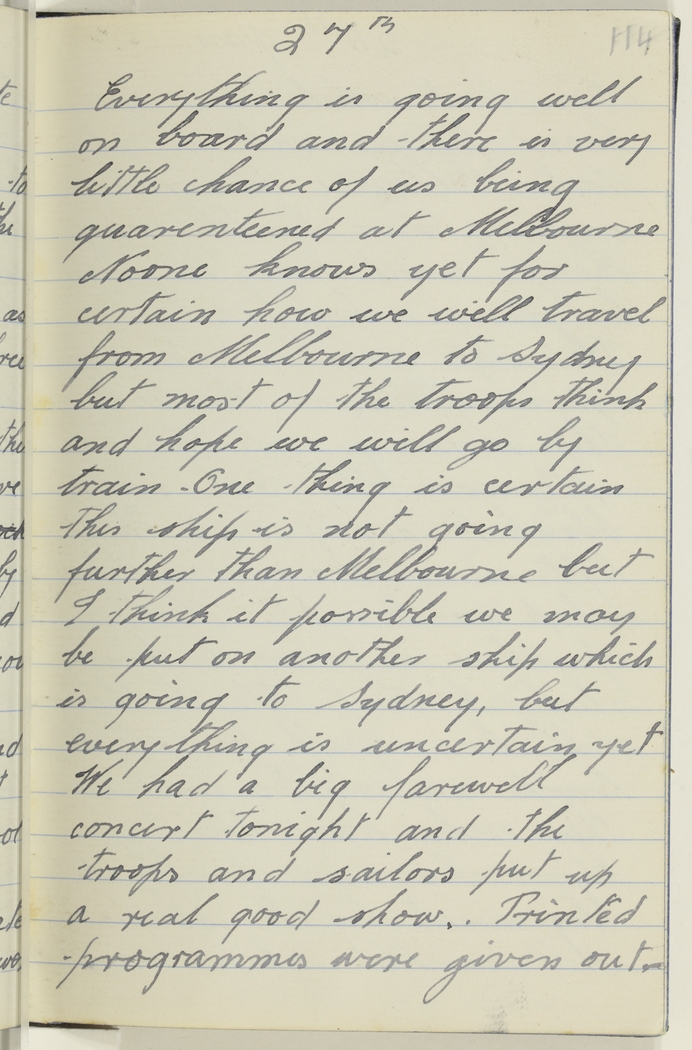 27th
114
Everything is going well
on board and there is very
little chance of us being
quarenteened at Melbourne
Noone knows yet for
certain how we well travel
from Melbourne to Sydney
but most of the troops think
and hope we will go by
train. One thing is certain
this ship is not going
further than Melbourne but
I think it possible we may
be put on another ship which
is going to Sydney, but
everything is uncertain yet
We had a big farewell
concert tonight and the
troops and sailors put up
a real good show.. Printed
programmes were given out.